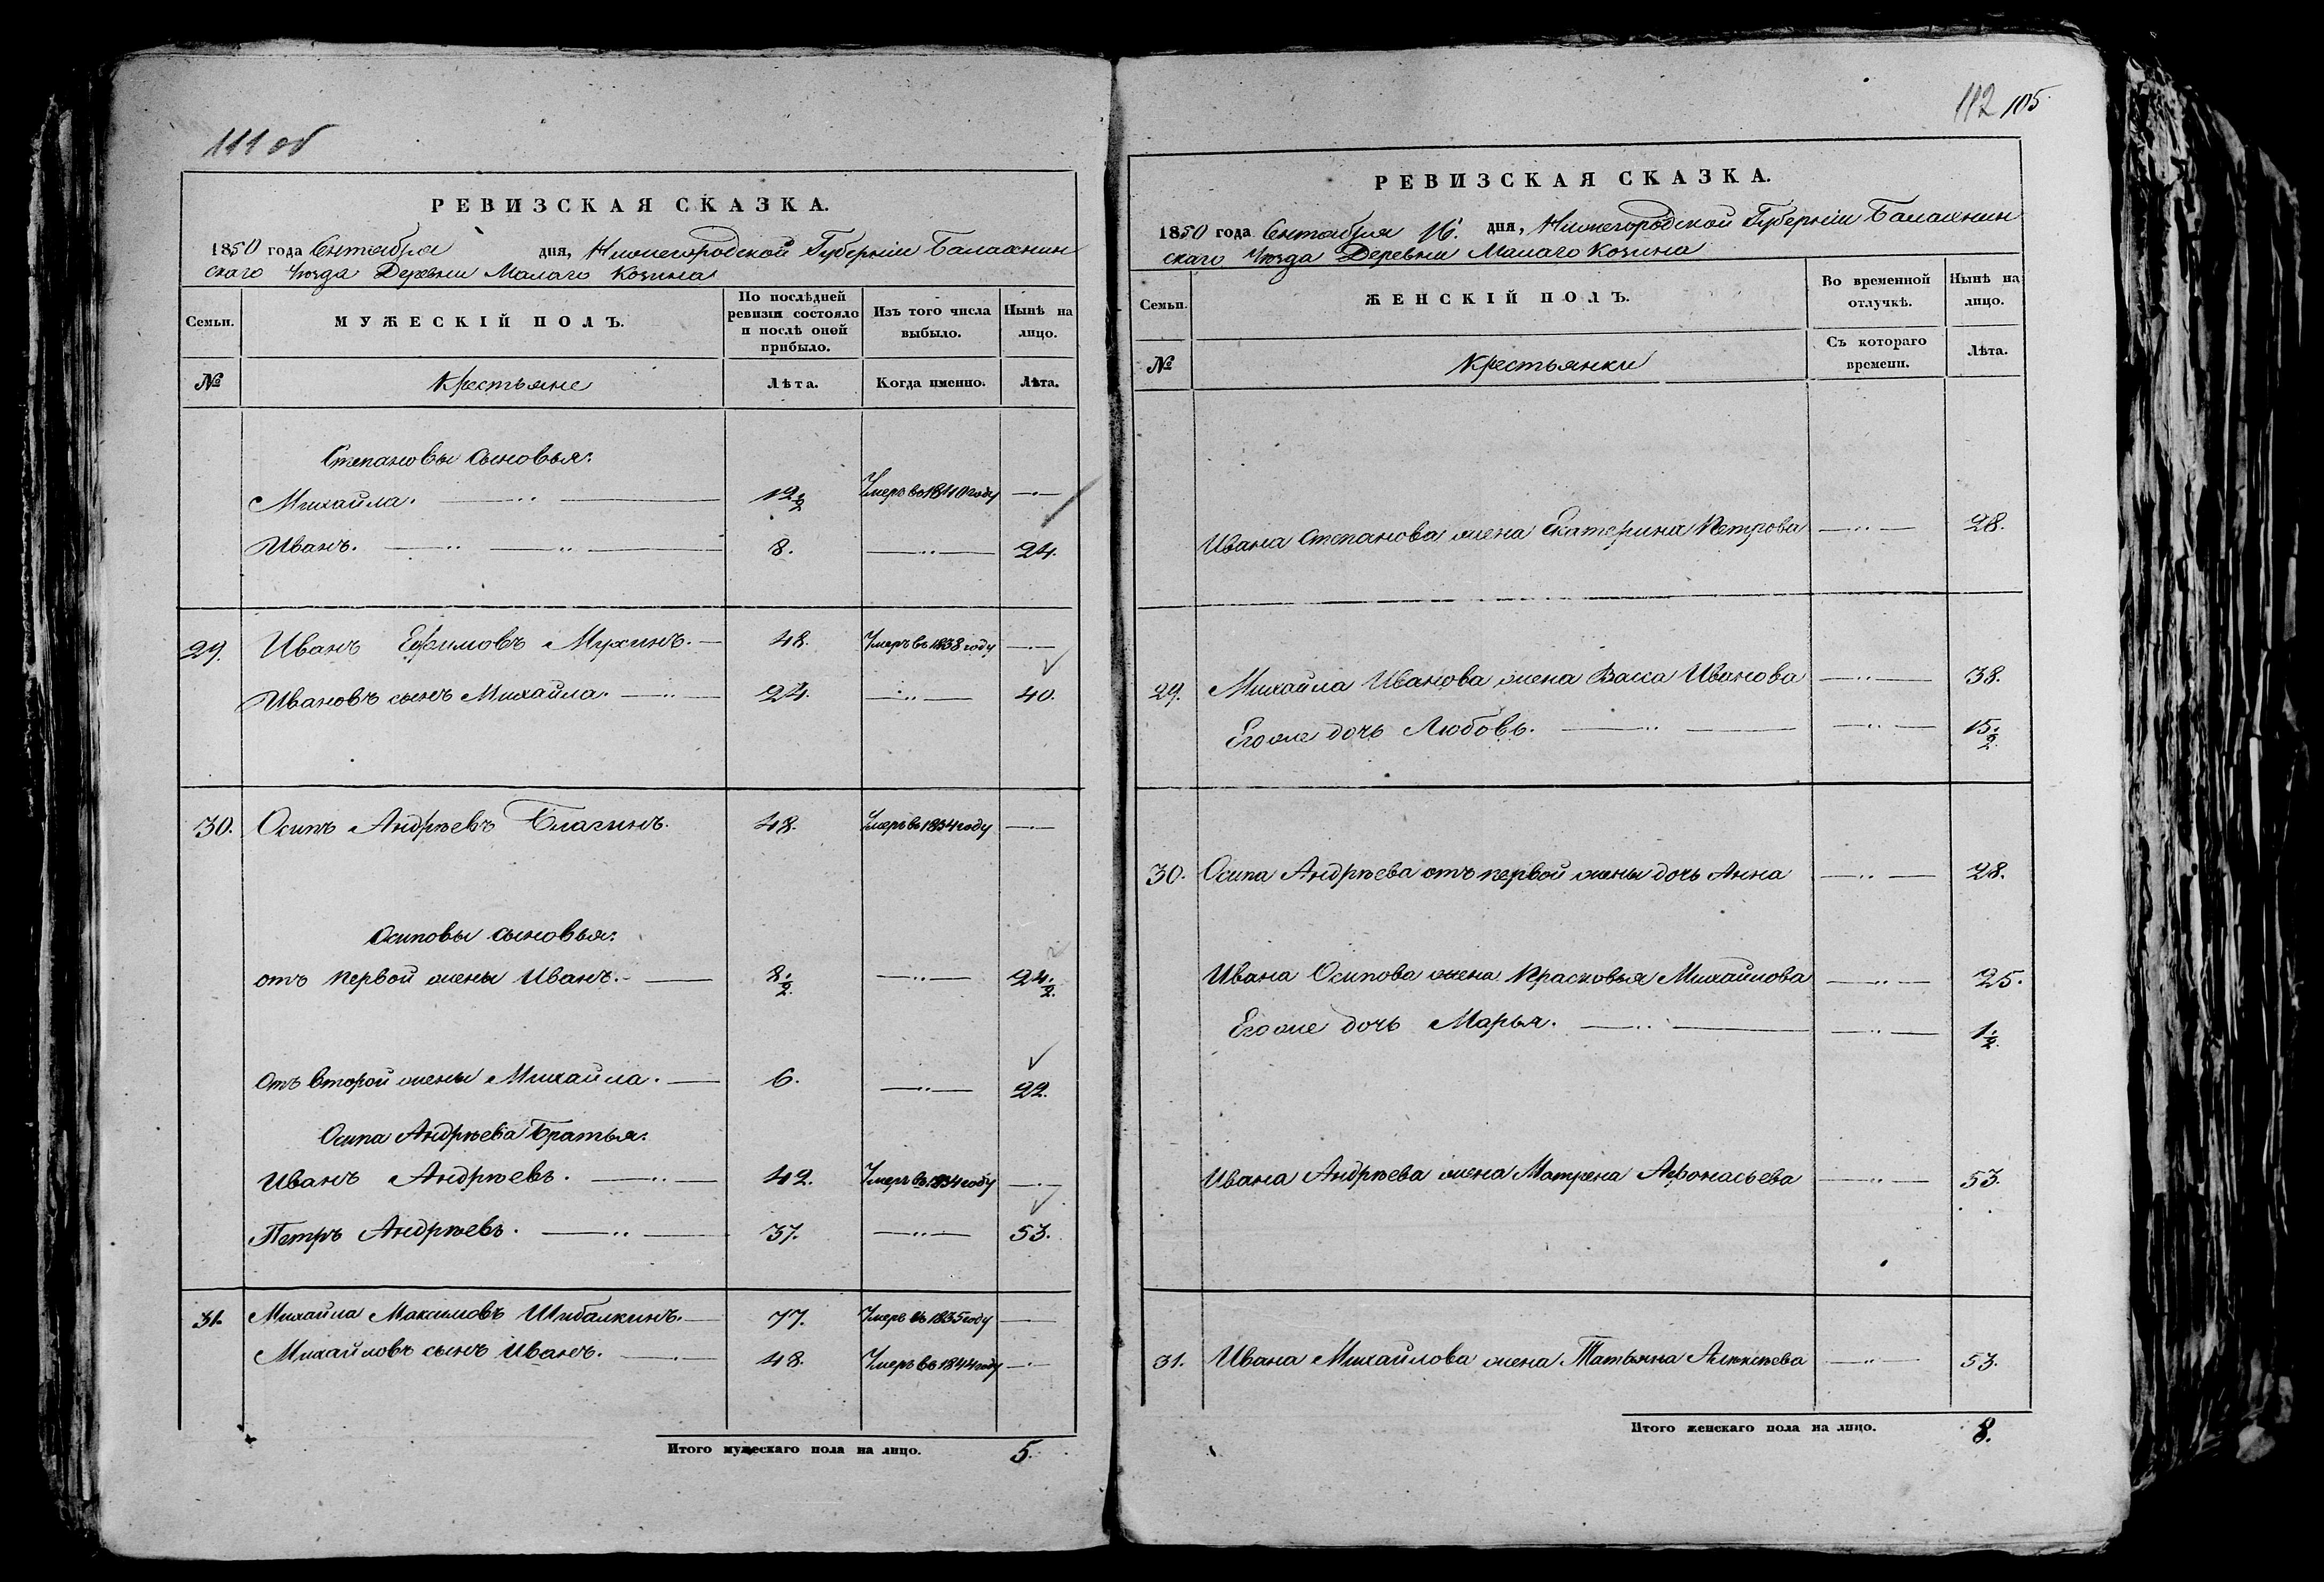 111 об
РЕВИЗСКАЯ СКАЗКА.
1850 года Сентября дня, Нижегородской Губерніи Балахнин
скаго Уѣзда Деревни Малаго Козина
Семьи. МУЖЕСКІЙ ПОЛЪ. По послѣдней ревизіи состояло и послѣ оной прибыло. Изъ того числа выбыло. Нынѣ на лицо.
№ Крестьяне Лѣта. Когда именно. Лѣта.
Степановы сыновья:
Михайла. 12 1/2 Умеръ въ 1840 году
Иванъ. 8. 24.
29. Иванъ Ефимовъ Мухинъ. 48. Умеръ въ 1838 году
Ивановъ сынъ Михайла. 24. 40.
30. Осипъ Андрѣевъ Благинъ. 48. Умеръ въ 1834 году
Осиповы сыновья:
отъ первой жены Иванъ. 8 1/2. 24 1/2.
Отъ второй жены Михайла. 6. 22.
Осипа Андрѣева Братья:
Иванъ Андрѣевъ. 42. Умеръ въ 1834 году
Петръ Андрѣевъ. 37. 53.
31. Михайла Максимовъ Шибалкинъ. 77. Умеръ въ 1835 году
Михайловъ сынъ Иванъ. 48. Умеръ въ 1844 году
Итого мужескаго пола на лицо. 5.
112 105.
РЕВИЗСКАЯ СКАЗКА.
1850 года Сентября 16. дня, Нижегородской Губерніи Балахнин
скаго Уѣзда Деревни Малаго Козина
Семьи. ЖЕНСКІЙ ПОЛЪ. Во временной отлучкѣ. Нынѣ на лицо.
№ Крестьянки Съ котораго времени. Лѣта.
Ивана Степанова жена Екатерина Петрова 28.
29. Михайла Иванова жена Васса Иванова 38.
Его же дочь Любовь. 15 1/2.
30. Осипа Андрѣева отъ первой жены дочь Анна 28.
Ивана Осипова жена Прасковья Михайлова 25.
Его же дочь Марья. 1 1/2.
Ивана Андрѣева жена Матрена Афонасьева 53.
31. Ивана Михайлова жена Татьяна Алексѣева 53.
Итого женскаго пола на лицо. 8.